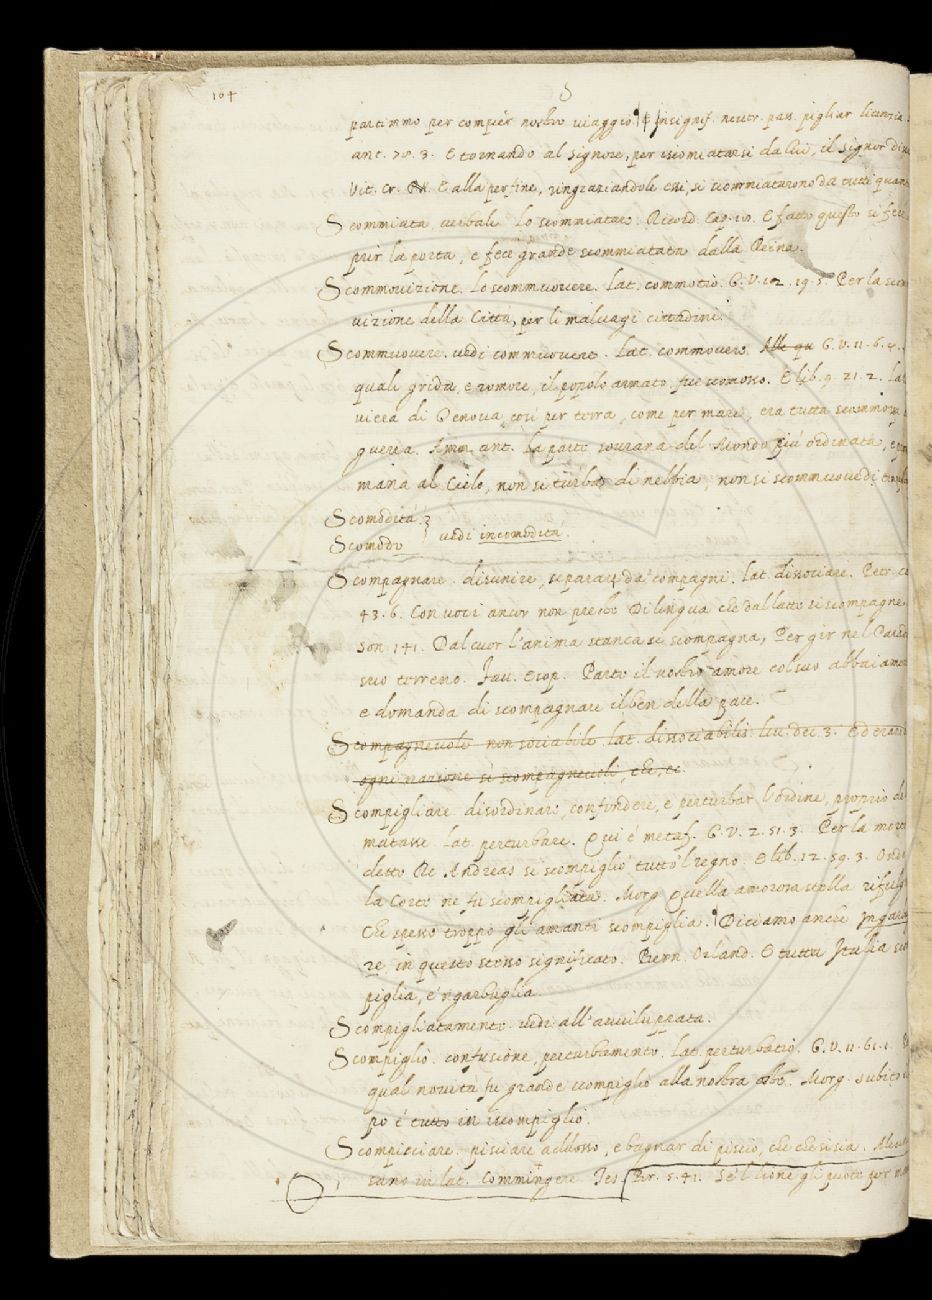 104 S
partimmo per compier nostro viaggio. In signif. neutr. pass. pigliar licenzia
ant. 78. 3. E tornando al signore, per iscomiatarsi da lui, il signor
Vit. Cr. E alla perfine, ringraziandole essi, si scommiatarono da tutti
Scommiata verbale. Lo scommiatare. Ricord. Cap. E fatto questo si fece
prir la porta, e fece grande scommiatata dalla Reina.
Scommovizione. Lo scommuovere. Lat. commotio. G. V. 102. 19. 5. Per la
vizione della Città, per li malvagi cittadini.
Scommuovere. vedi commuovere. Lat. commovere. G. V. 11. 6. 4.
quali grida, e romore, il popolo armato, fue scomosso. E lib. 9. 21. 2.
viera di Genova, così per terra, come per mare, era tutta scommossa
guerra. Amm. ant. La parte sovrana del Mondo più ordinata,
mana al Cielo, non si turba di nebbia, non si scommuove di
Scomodità
Scomodo vedi incomodità.
Scompagnare. disunire, separare da' compagni. Lat. dissociare. Petr.
43. 6. Con voci ancor non preste Di lingua che dal latte si scompagne
son. 141. Dal cuor l'anima stanca si scompagna, Per gir nel
suo terreno. Fav. Esop. Parte il nostro amore col suo abbaiamento
e domanda di scompagnare il ben della pace.
Scompagnevole non sociabile lat. dissociabilis Liv. dec. 3. Ed
ogni nazione sì scompagnevoli, che, ec.
Scompigliare. disordinare, confondere, e perturbar l'ordine, proprio
matasse. Lat. perturbare. Qui è metaf. G. V. 2. 51. 3. Per la morte
detto Re Andreas si scompigliò tutto 'l regno. E lib. 12. 59. 3.
la Corte ne fu scompigliata. Morg. Quella amorosa stella
Che spesso troppo gli amanti scompiglia. Diciamo anche
re, in questo stesso significato. Bern. Orland. E tutta Italia
piglia, e 'ngarbuglia.
Scompigliatamente. vedi all'avviluppata.
Scompiglio. confusione, perturbamento. Lat. perturbatio. G. V. 11. 61. 1.
qual novità fu grande scompiglio alla nostra. Morg. subito
po è tutto in iscompiglio.
Scompisciare. pisciare addosso, e bagnar di piscio, che che si sia.
sano in lat. Commingere. Tes. Br. 5. 41. Se'l lione gli puote